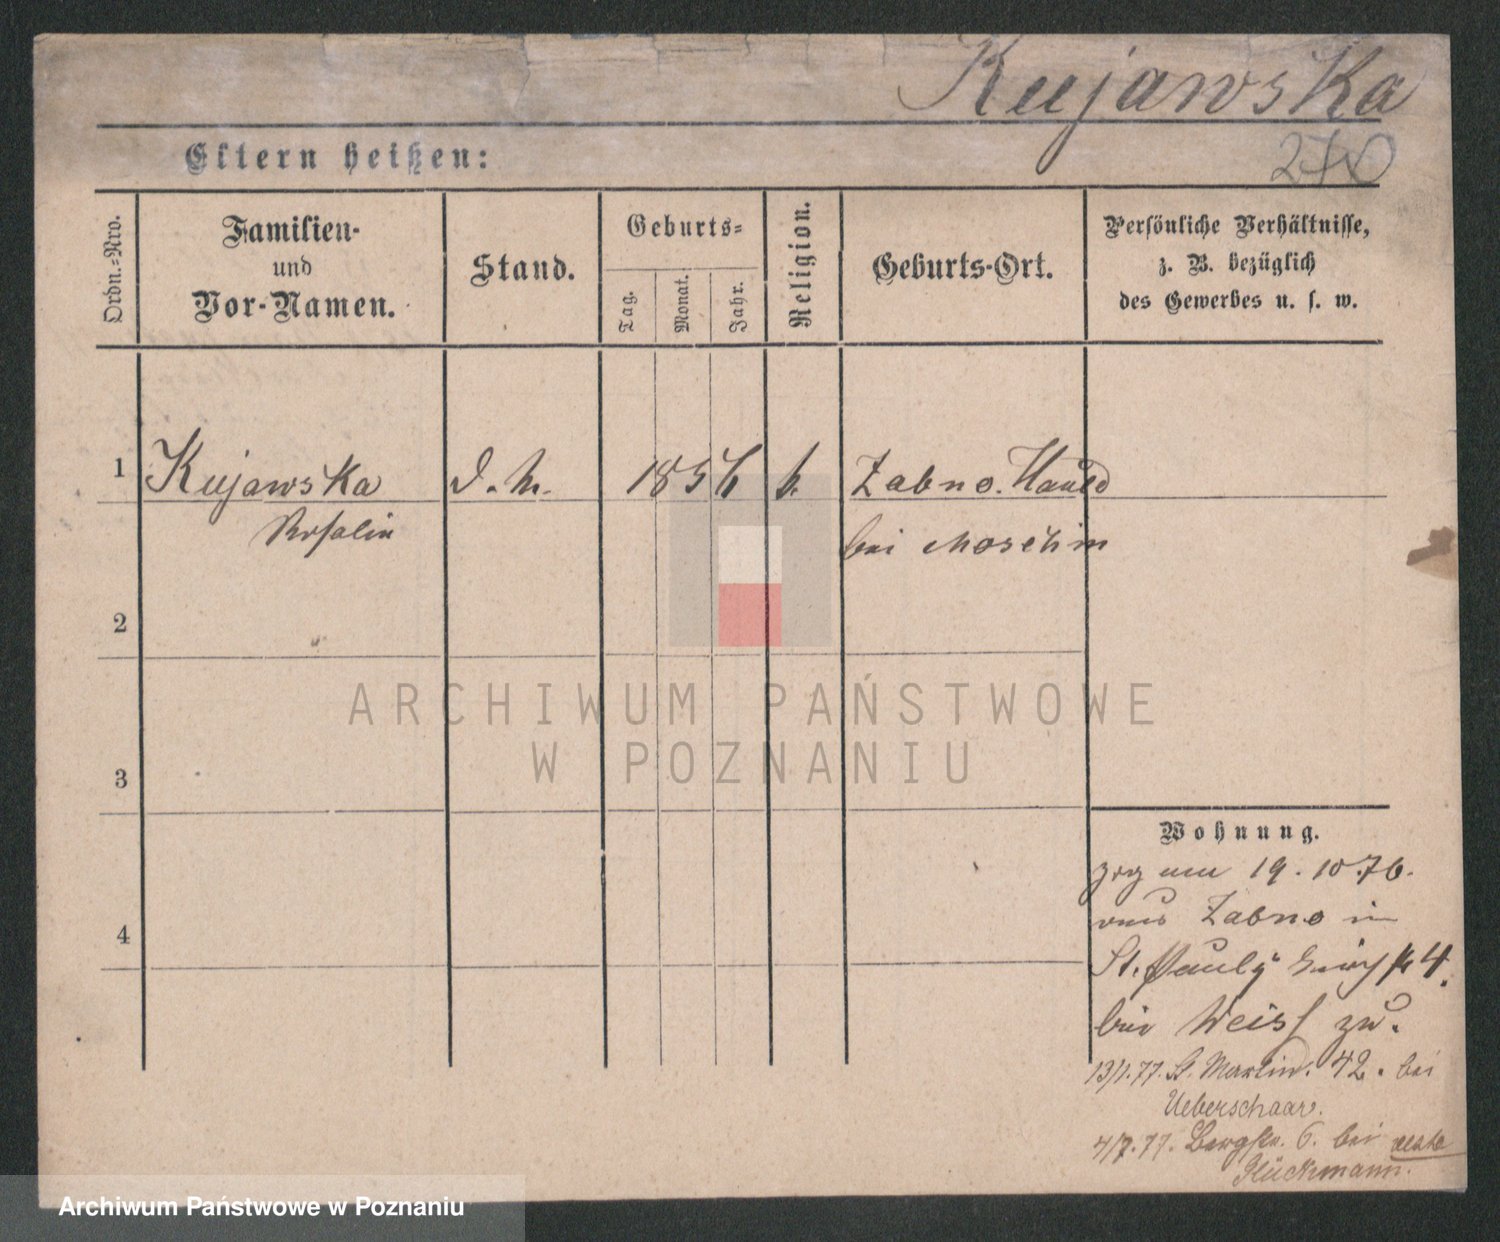 Kujawska
270
Eltern heißen:
Ordn.-Nro.
Familien-
und
Vor-Namen.
Stand.
Geburts-
Tag.
Monat.
Jahr.
Religion.
Geburts-Ort.
Persönliche Verhältnisse,
z. B. bezüglich
des Gewerbes u. s. w.
1 Kujawska D. M. 1856 k. Zabno. Hauld
Rosalie bei Moschin
2
3
4
ARCHIWUM PAŃSTWOWE
W POZNANIU
Wohnung.
zog am 19. 10 76.
aus Zabno in
St. Pauly 4.
bei Weiss zu.
13/1.77. St. Martin. 42. bei
Ueberschaar.
4/7.77. Bergstr. 6. bei
Glückmann.
Archiwum Państwowe w Poznaniu